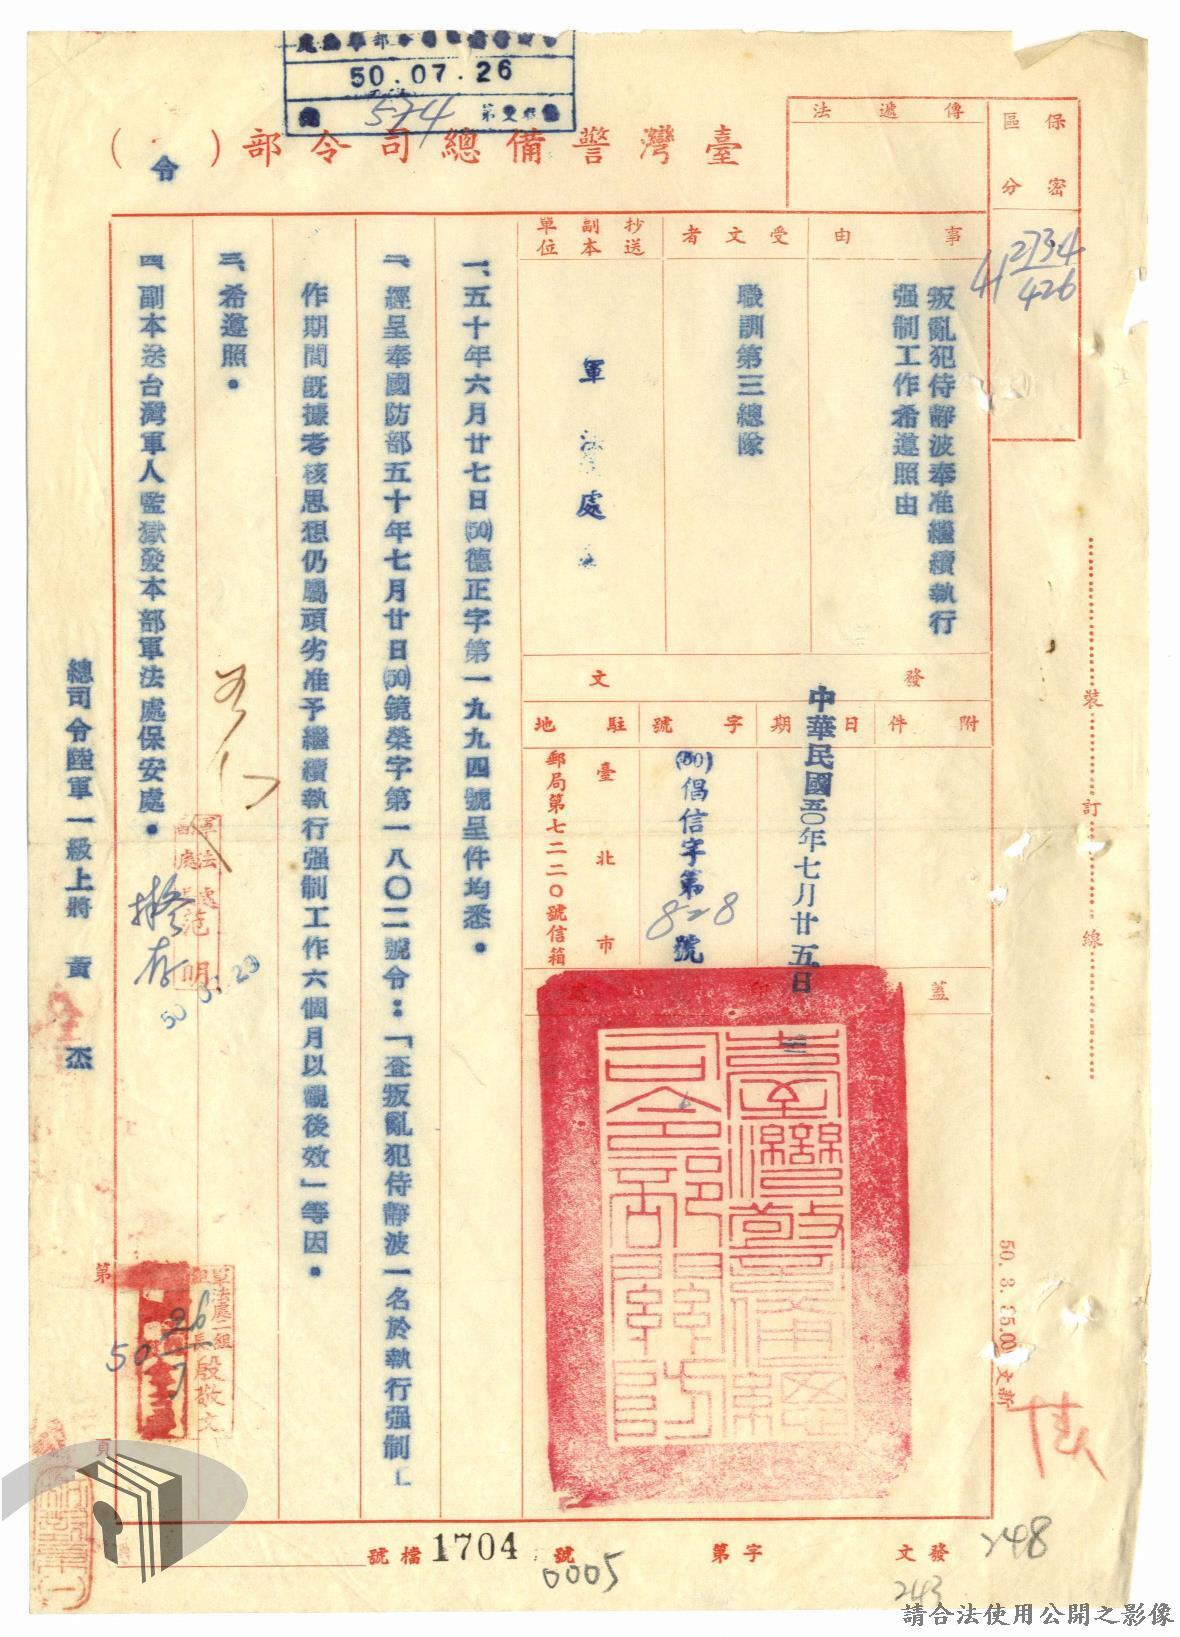 50.07.26
574
臺灣警備總司令部(令)
傳遞法
保密區分
2734
41 426
事由
叛亂犯侍靜波奉准繼續執行
强制工作希遵照由
受文者
職訓第三總隊
抄送副本單位
軍法處
發文
附件
日期
中華民國五〇年七月廿五日
字號
(50)倡信字第828號
駐地
臺北市
郵局第七二二〇號信箱
蓋印
一、五十年六月廿七日(50)德正字第一九九四號呈件均悉。
二、經呈奉國防部五十年七月廿日(50)鏡榮字第一八〇二號令:「查叛亂犯侍靜波一名於執行强制工
作期間既據考核思想仍屬頑劣准予繼續執行强制工作六個月以觀後效」等因。
三、希遵照。
四、副本送台灣軍人監獄發本部軍法處保安處。
總司令陸軍一級上將 黃杰
擬存
軍法處二組組長殷敬文
50 26/7
臺灣警備總司令部關防
裝訂線
50. 3. 文新
第
頁
發文
字第
號
0005
檔號
1704
248
243
請合法使用公開之影像